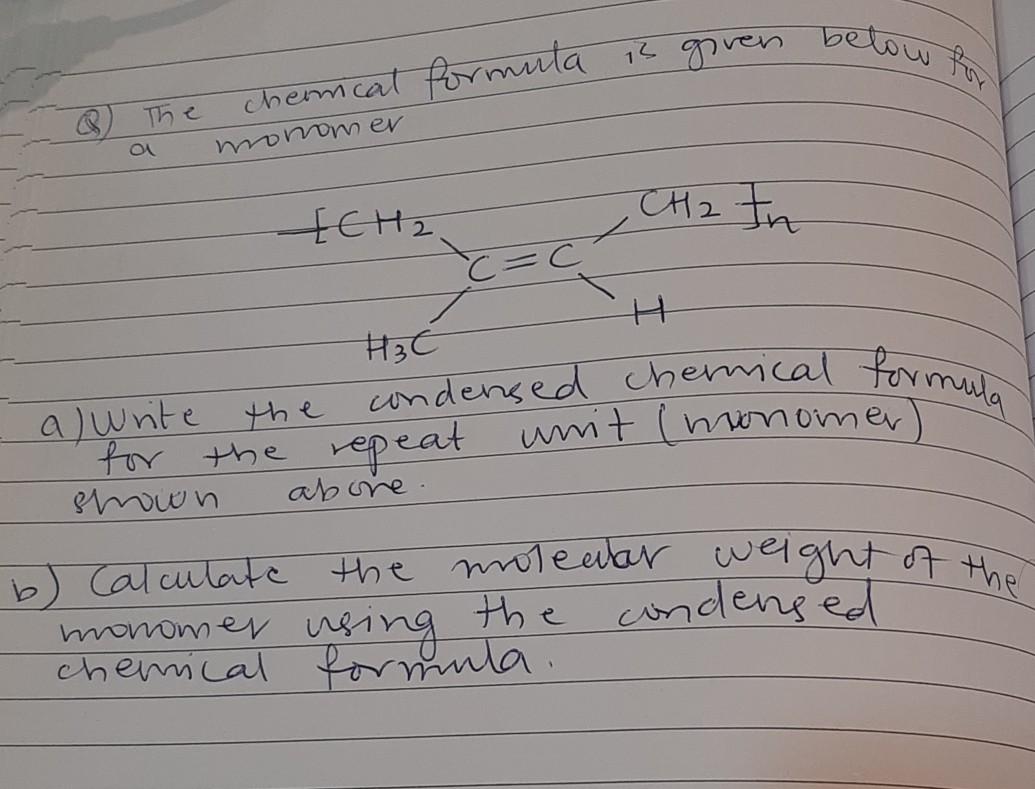 Q) The chemical formula is given below for
a monomer
-[CH2 CH2 ]n
C=C
H3C H
a) Write the condensed chemical formula
for the repeat unit (monomer)
shown above.
b) Calculate the molecular weight of the
monomer using the condensed
chemical formula.